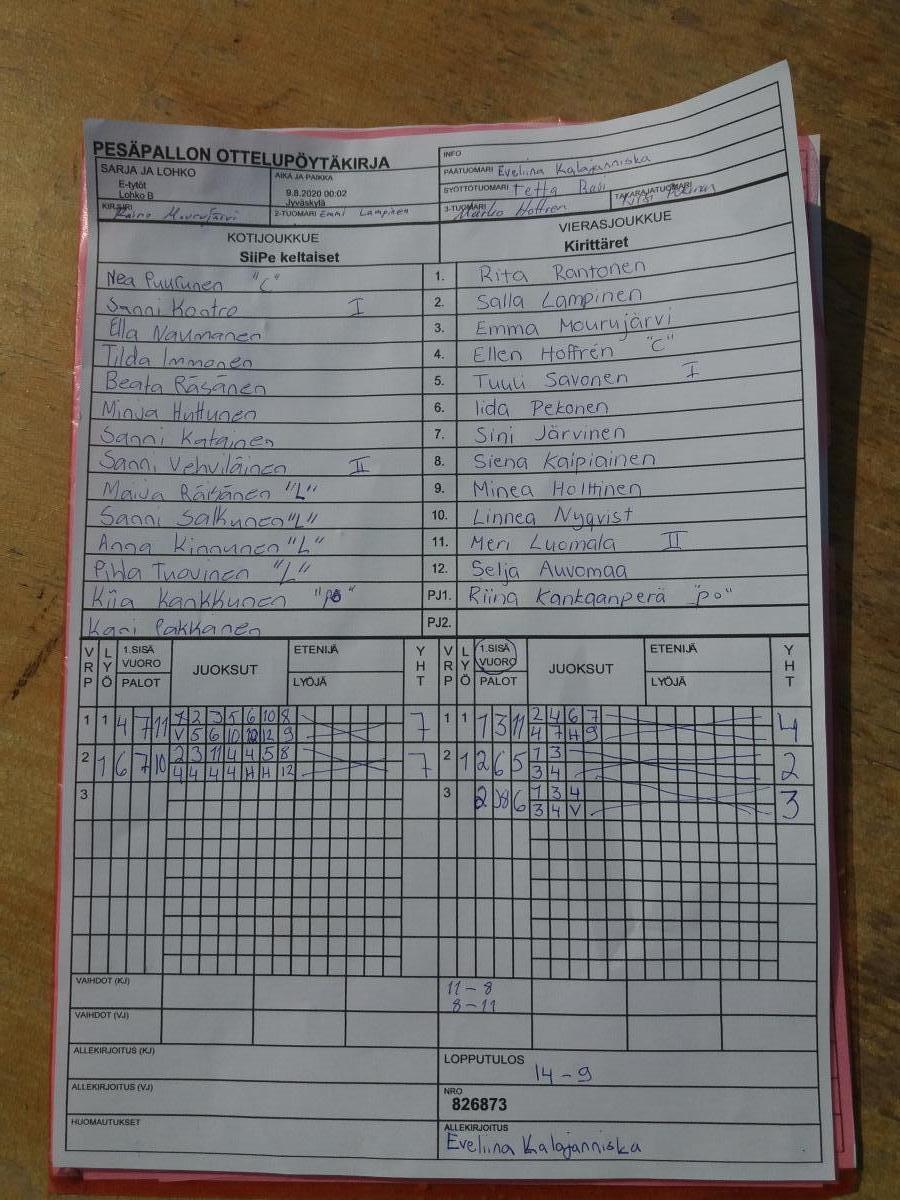 PESÄPALLON OTTELUPÖYTÄKIRJA
SARJA JA LOHKO
E-tytöt
Lohko B
AIKA JA PAIKKA
9.8.2020 00:02
Jyväskylä
INFO
PÄÄTUOMARI Eveliina Kalajanniska
SYÖTTÖTUOMARI
TAKARAJATUOMARI
KIRJURI
2-TUOMARI Emmi Lampinen
3-TUOMARI Marko Hoffren
KOTIJOUKKUE
SiiPe keltaiset
VIERASJOUKKUE
Kirittäret
Nea Puurunen "C" 1. Rita Rantonen
Sanni Kontro I 2. Salla Lampinen
Ella Naumanen 3. Emma Mourujärvi
Tilda Immonen 4. Ellen Hoffrén "C"
Beata Räsänen 5. Tuuli Savonen I
Minja Huttunen 6. Iida Pekonen
Sanni Katainen 7. Sini Järvinen
Sanni Vehviläinen II 8. Siena Kaipiainen
Maija Räisänen "L" 9. Minea Holttinen
Sanni Salkunen "L" 10. Linnea Nyqvist
Anna Kinnunen "L" 11. Meri Luomala II
Pihla Tuovinen "L" 12. Selja Auvomaa
Kiia Kankkunen PJ1. Riina Kankaanperä "po"
Kari Pakkanen PJ2.
VRP LYÖ 1.SISÄ VUORO PALOT JUOKSUT ETENIJÄ LYÖJÄ YHT VRP LYÖ 1.SISÄ VUORO PALOT JUOKSUT ETENIJÄ LYÖJÄ YHT
1 1 4 7 11 2 3 5 6 10 8 7 1 1 1 3 11 2 4 6 7 4
V 5 6 10 12 9 4 7 H 9
2 1 6 7 10 2 3 11 4 4 5 8 7 2 1 2 6 5 1 3 2
4 4 4 4 H H 12 3 4
3 3 2 6 1 3 4 3
3 4 V
VAIHDOT (KJ) 11-8
8-11
VAIHDOT (VJ)
ALLEKIRJOITUS (KJ)
LOPPUTULOS
14-9
ALLEKIRJOITUS (VJ)
NRO
826873
HUOMAUTUKSET
ALLEKIRJOITUS
Eveliina Kalajanniska